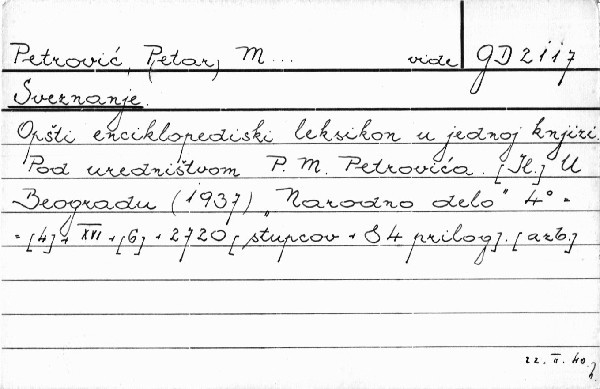 Petrović, P(etar) M... vide GD 2117
Sveznanje.
Opšti enciklopediski leksikon u jednoj knjizi.
Pod uredništvom P. M. Petrovića. [Il.] U
Beogradu (1937) „Narodno delo" 4° =
= [4] + XVI + [6] + 2720 [stupcov + 84 prilog]. [arb.]
22. II. 40.